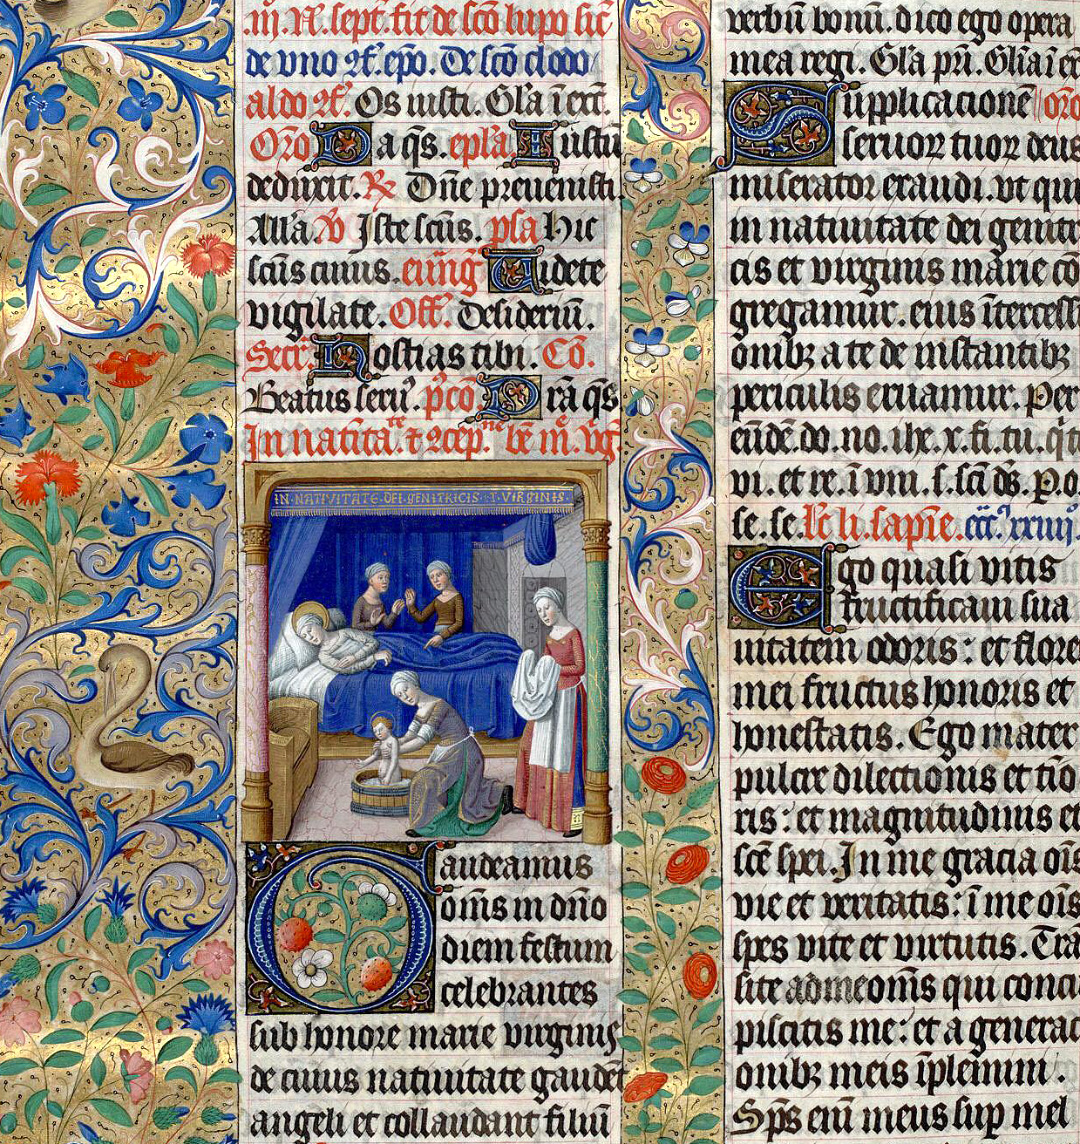 .iij. N. sept. fit de scō lupo sic̄
de vno ꝯf. epō. De scō clodo/
aldo ꝯf. Os iusti. Gl'a ī exc̄.
Or̄o Da q̄s. ep̄la. Iustū
deduxit. ℟ Dn̄e preuenisti
All'a. ℣ Iste sc̄us. p̄sa Hic
sc̄us cuius. euu̅g̅ Uidete
vigilate. Off. Desideriū.
Secr̄. Hostias tibi. Cō.
Beatus seru'. p̄cō Pr̄a q̄s
In natiuita.te ⁊ ꝯcep.ne be̅ m̄. v̄g̅
IN NATIVITATE DEI GENITRICIS ⁊ VIRGINIS
Gaudeamus
om̄s in dn̄o
diem festum
celebrantes
sub honore marie virginis
de cuius natiuitate gaudēt
angeli et collaudant filiū
verbū bonū. dico ego opera
mea regi. Gl'a pr̄i. Gl'ia ī ex
Supplicationē or̄o
seruoꝝ tuoꝝ deus
miserator exaudi. vt qui
in natiuitate dei genitri
cis et virginis marie cō
gregamur. eius ītercess
onibꝫ a te de instantibꝫ
periculis eruamur. Per
eūdē. do. no. ihe. x. fi. tu. q̄ t
vi. et re. ī vni. s. sc̄i ds̄. P. o
se. se. Lc̄ li. sapīe. cc̄. xxiiij.
Ego quasi vitis
fructificaui sua
uitatem odoris: et flore
mei fructus honoris et
honestatis. Ego mater
pulcre dilectionis et tīo
ris: et magnitudinis et
sc̄e spei. In me gracia ōis
vie et veritatis: ī me ōis
spes vite et virtutis. Tra
site ad me om̄s qui concu
piscitis me: et a generac
onibꝫ meis īplemini.
Sp̄s eni̅ meus sup mel